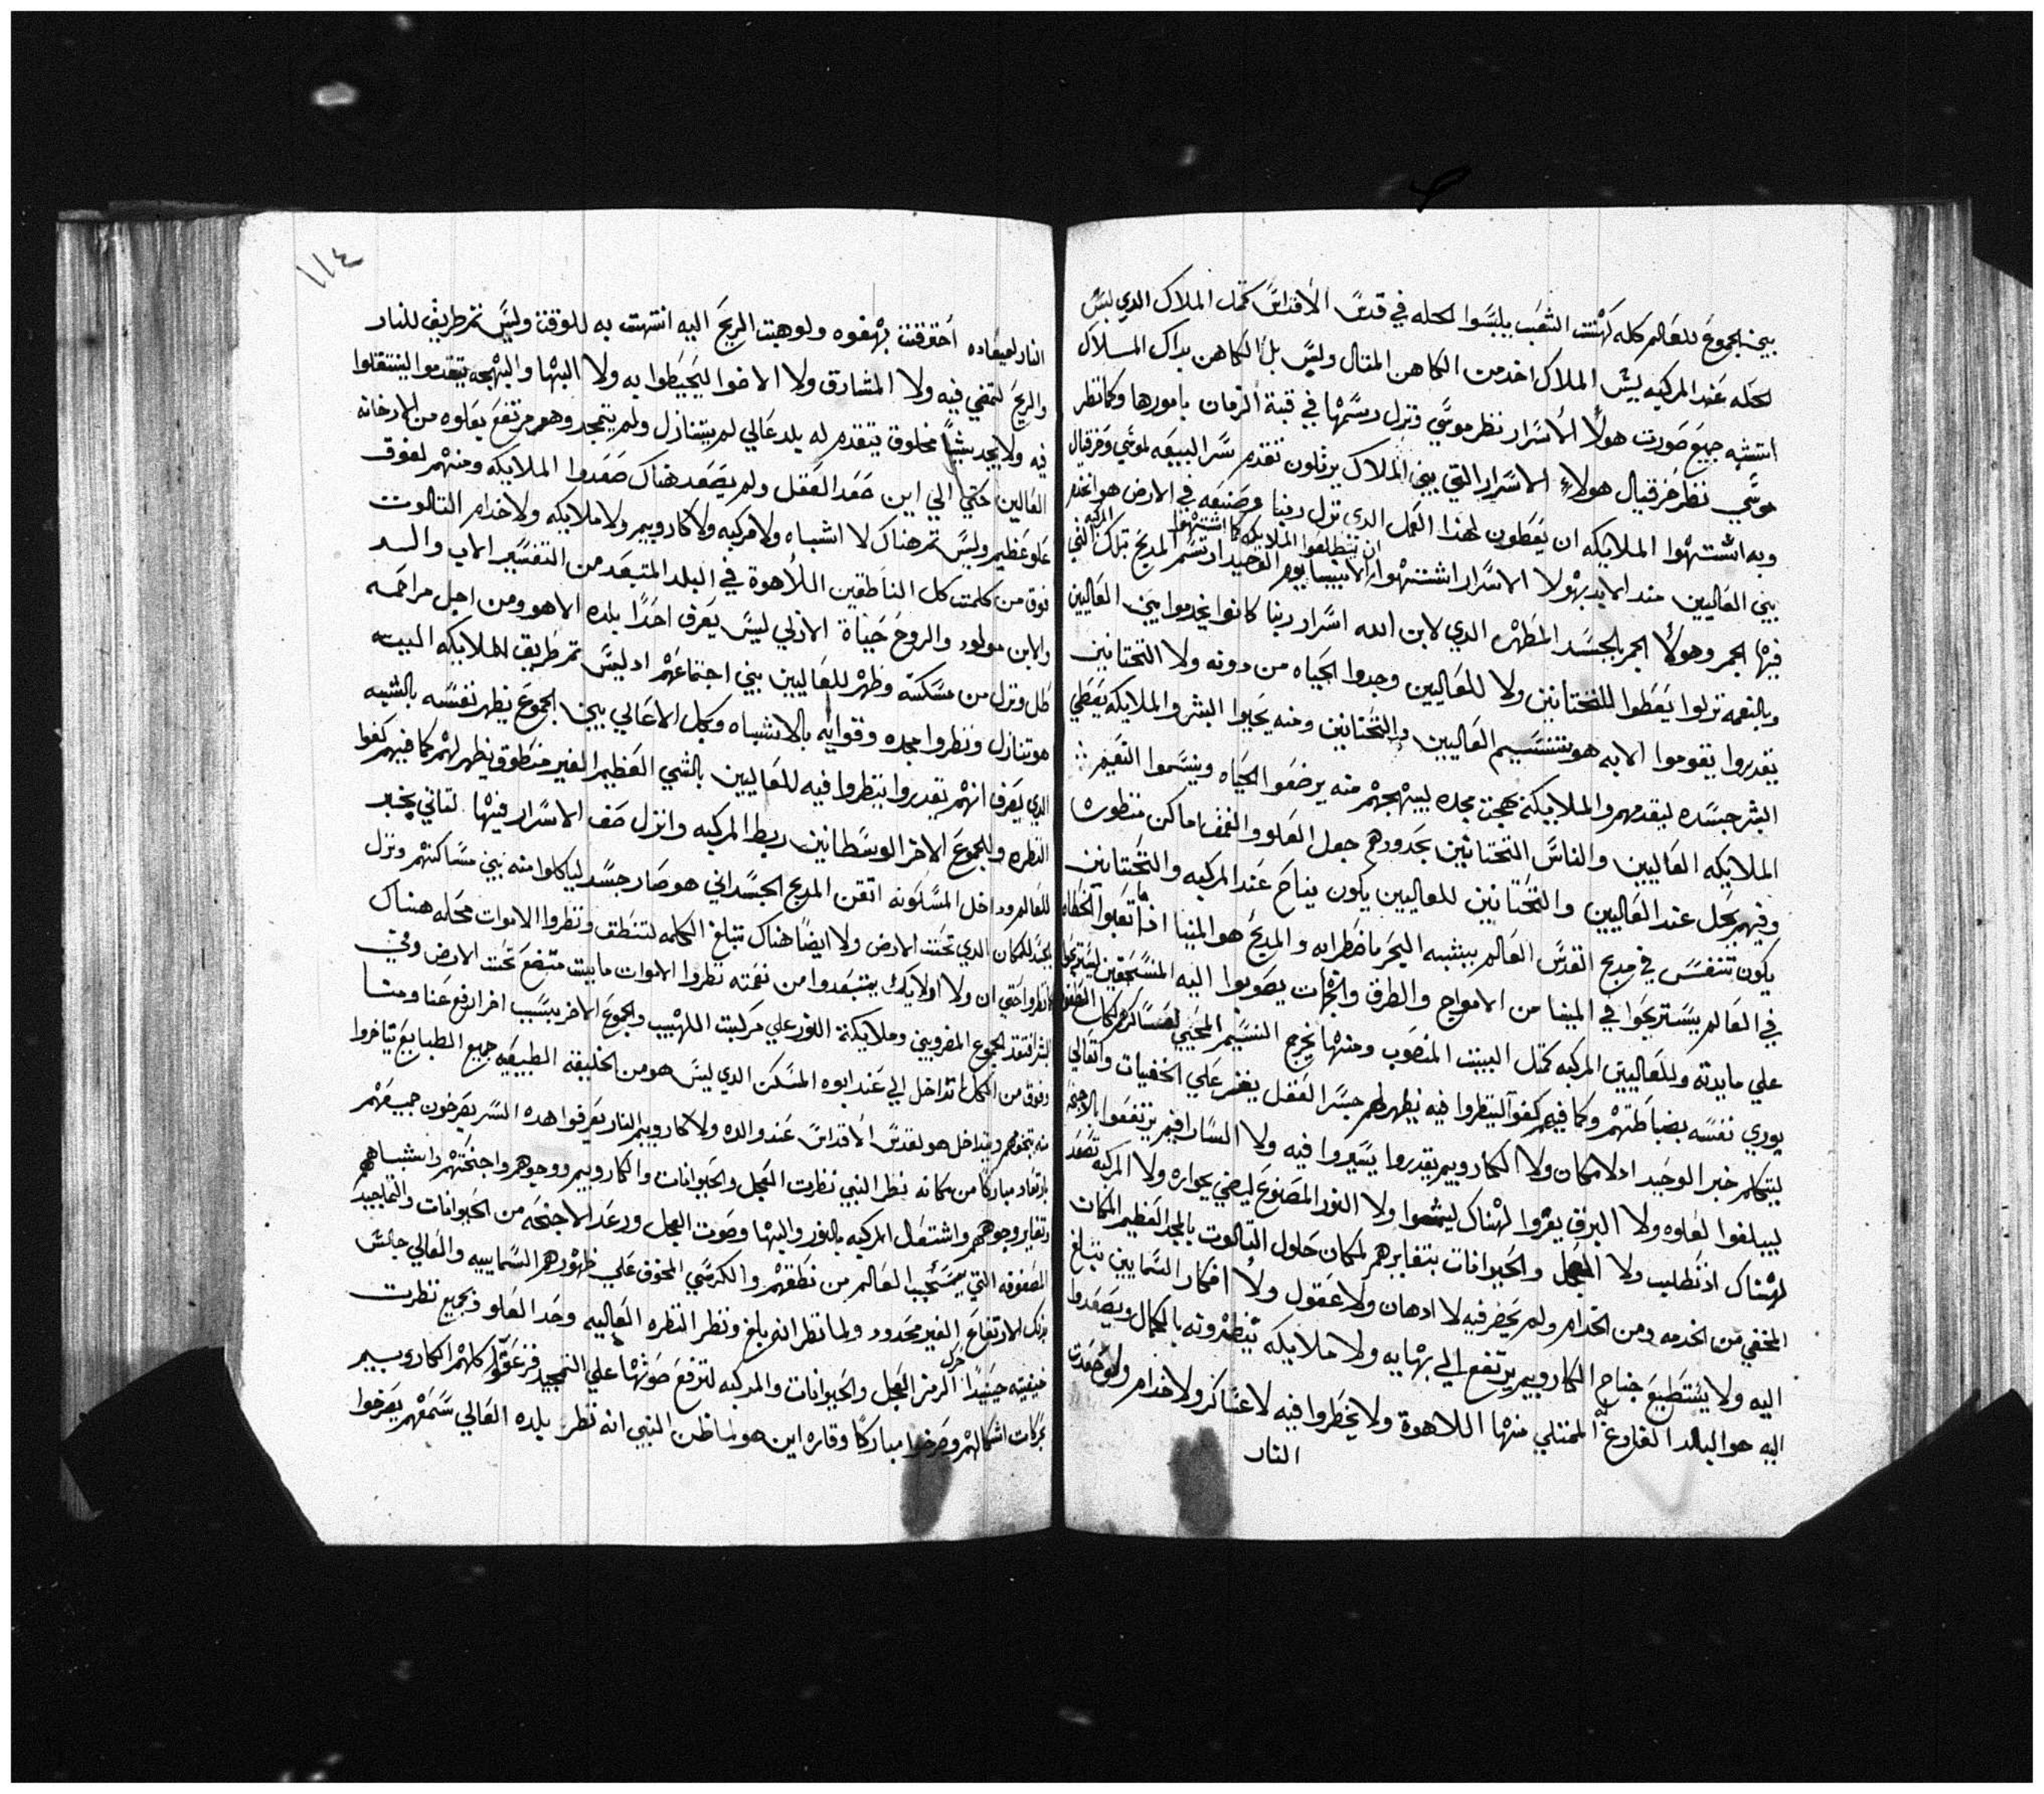 بين الجموع للعالم كله كهنت الشعب يلبسوا الحله في قدس الأقداس كمثل الملاك الدي لبس
لحله عند المركبه ليس الملاك اخد من الكاهن المتال وليس بل الكاهن بداك المسلاك
اتشبه جميع صورت هولاء الأسرار نظر موسي ونزل رسمها في قبة الزمان بامورها وكما نظر
موسي نظر حزقيال هولاء الاسرار التي بين الملاك يرتلون تقدم سر البيعه لموسي وحزقيال
وبه اشتهوا الملايكه ان يعطون لهذا العمل الدي نزل ربنا وصنعه في الارض هو اخدم المركبه
بين العاليين مند الابد بهولا الاسرار اشتهوا الانبيا يوم الوحيد ان يتطلعوا الملايكه كما اشتهوا ارتسم المديح تلك التي
فيها الجمر وهولاء الجمر بالجسد المطهر الدي لابن الله اسرار ربنا كانوا يخدموا بين العاليين
وبالنعمه نزلوا يعطوا للتحتانين ولا للعاليين وجدوا الحياه من دونه ولا التحتانين
يقدروا يقوموا الا به هو نسيم العاليين والتحتانين ومنه يحيوا البشر والملايكه يعطي
البشر جسده ليقدمهم والملايكة بهجت مجده ليبهجهم منه يرضعوا الحياه وينسموا النعيم
الملايكه العاليين والناس التحتانين بحدودهم جعل العلو والعمق اماكن منظورها
وفيهم يحل عند العاليين والتحتانين للعاليين يكون يناح عند المركبه والتحتانين
يكون تنفس في مدبح القدس العالم بيشبه البحر باضطرابه والمدبح هو المينا اداما تعبوا الخطاه
في العالم يستريحوا في المينا من الامواج والطرق والجات يصوبوا اليه المنسحقين ليستريحوا
علي مايدته وللعاليين المركبه كمثل البيت المنصوب ومنها يخرج النسيم المحيي لعساكرهم كل
يوري نفسه بضباطتهم وكما فيهم كفوا لينظروا فيه يظهر لهم جسر العقل يعبر علي الخفيات واتعالي
ليتكلم خبر الوحيد اد لا مكان ولا الكاروبيم يقدروا يسيروا فيه ولا السارافيم يرتفعوا بالاجنحه
ليبلغوا لعلوه ولا البرق يعبروا لهناك ليشعوا ولا النور المصنوع ليضي بجواره ولا المركبه تصعد
لهناك اد تطلب ولا العجل والحيوانات بتغايرهم لمكان حلول التالوت بالمجد العظيم المكان
المخفي من الخدمه ومن الخدام ولم يحضر فيه لا ادهان ولا عقول ولا افكار السمايين تبلغ
اليه ولا يستطيع جناح الكاروبيم يرتفع الي بهايه ولا ملايكه ينظرونه بالكمال ويصعدوا
اليه هو البلد الفارغ الممتلي منها اللاهوة ولا يخطروا فيه لا عساكر ولا خدام ولو صعدت
النار
١١٤
النار لميعاده أحترقت بهفوه ولو هبت الريح اليه انتهت به للوقت وليس تم طريق للنار
والريح لتمضي فيه ولا المشارق ولا الاضوا ليحيطوا به ولا البها والبهجه يتقدموا لينتقلوا
فيه ولا يجد شيا مخلوق يتقدم له بلد عالي لم يتنازل ولم يتمجد وهو مرتفع بعلوه من
العالين حتي الي اين صعد العقل ولم يصعد هناك صعدوا الملايكه ومنهم لفوق
علو عظيم وليس تم هناك لا اشباه ولا مركبه ولا كاروبيم ولا ملايكه ولا خدام التالوت
فوق من كلمت كل الناطقين اللأهوة في البلد المتبعد من التفسير الاب والسد
والابن مولود والروح حياة الازلي ليس يعرف احدا بلده الا هو ومن اجل مراحمه
طل ونزل من مسكنه وظهر للعاليين بين اجتماعهم اد ليس تم طريق للملايكه البيته
هو تنازل ونظروا مجده وقوايه بالاشباه وبكل الاعالي بين الجموع يظهر نفسه بالشبه
الدي يعرف انهم يقدروا ينظروا فيه للعاليين بالشي العظيم الغير منطوق يظهر لهم كما فيهم كفوا
النظره وللجموع الاخر الوسطانين ربط المركبه وانزل صف الاسرار فيها لتاني يخبر
للعالم وداخل المسكونه اتقن المدبح الجسداني هو صار جسد لياكلوا منه بين مساكنهم ونزل
بحد للمكان الدي تحت الارض ولا ايضا هناك تبلغ الكلمه لتنطق ونظروا الاموات محله هناك
انظروا حتي ان ولا اولايك يبتعدوا من نعمته نظروا الاموات مابيت متضع تحت الارض وفي
البشر افتقد الجموع المضروبين وملايكة النور علي مركبت اللهيب والجموع الاخر بسبب اخر ارفع عنا ومنا
وفوق من الكل اتداخل الي عند ابوه المسكن الدي ليس هو من الخليقة الطبيعيه جميع الطبايع يتاخروا
منه بتخومهم ويتداخل هو لقدس الأقداس عند والده ولا كاروبيم النار يعرفوا هده السر يصرخون جميعهم
بارتعاد مباركا من مكانه نظر النبي نظرت العجل والحيوانات والكاروبيم ووجوههم واجنحتهم واشباههم
وتغاير وجوههم واشتعال المركبه بالنور والبها وصوت العجل ورعد الاجنحه من الحيوانات والتماجيد
المصفوفه التي يتسحب العالم من نطقهم والكرسي المخوف علي ظهورهم السماييه والعالي جالس
بدلك الارتفاع الغير محدود ولما نظر انه بلغ ونظر النظره العاليه وحد العلو وجميع نظرت
خيفيته حينيدا حرك الرمز العجل والحيوانات والمركبه لترفع صوتها علي التمجيد فزعقوا كلهم الكاروبيم
بحركات اشكالهم وصرخوا مباركا وقاره اين هو لما ظن النبي انه نظر بلده العالي سمعهم يصرخوا